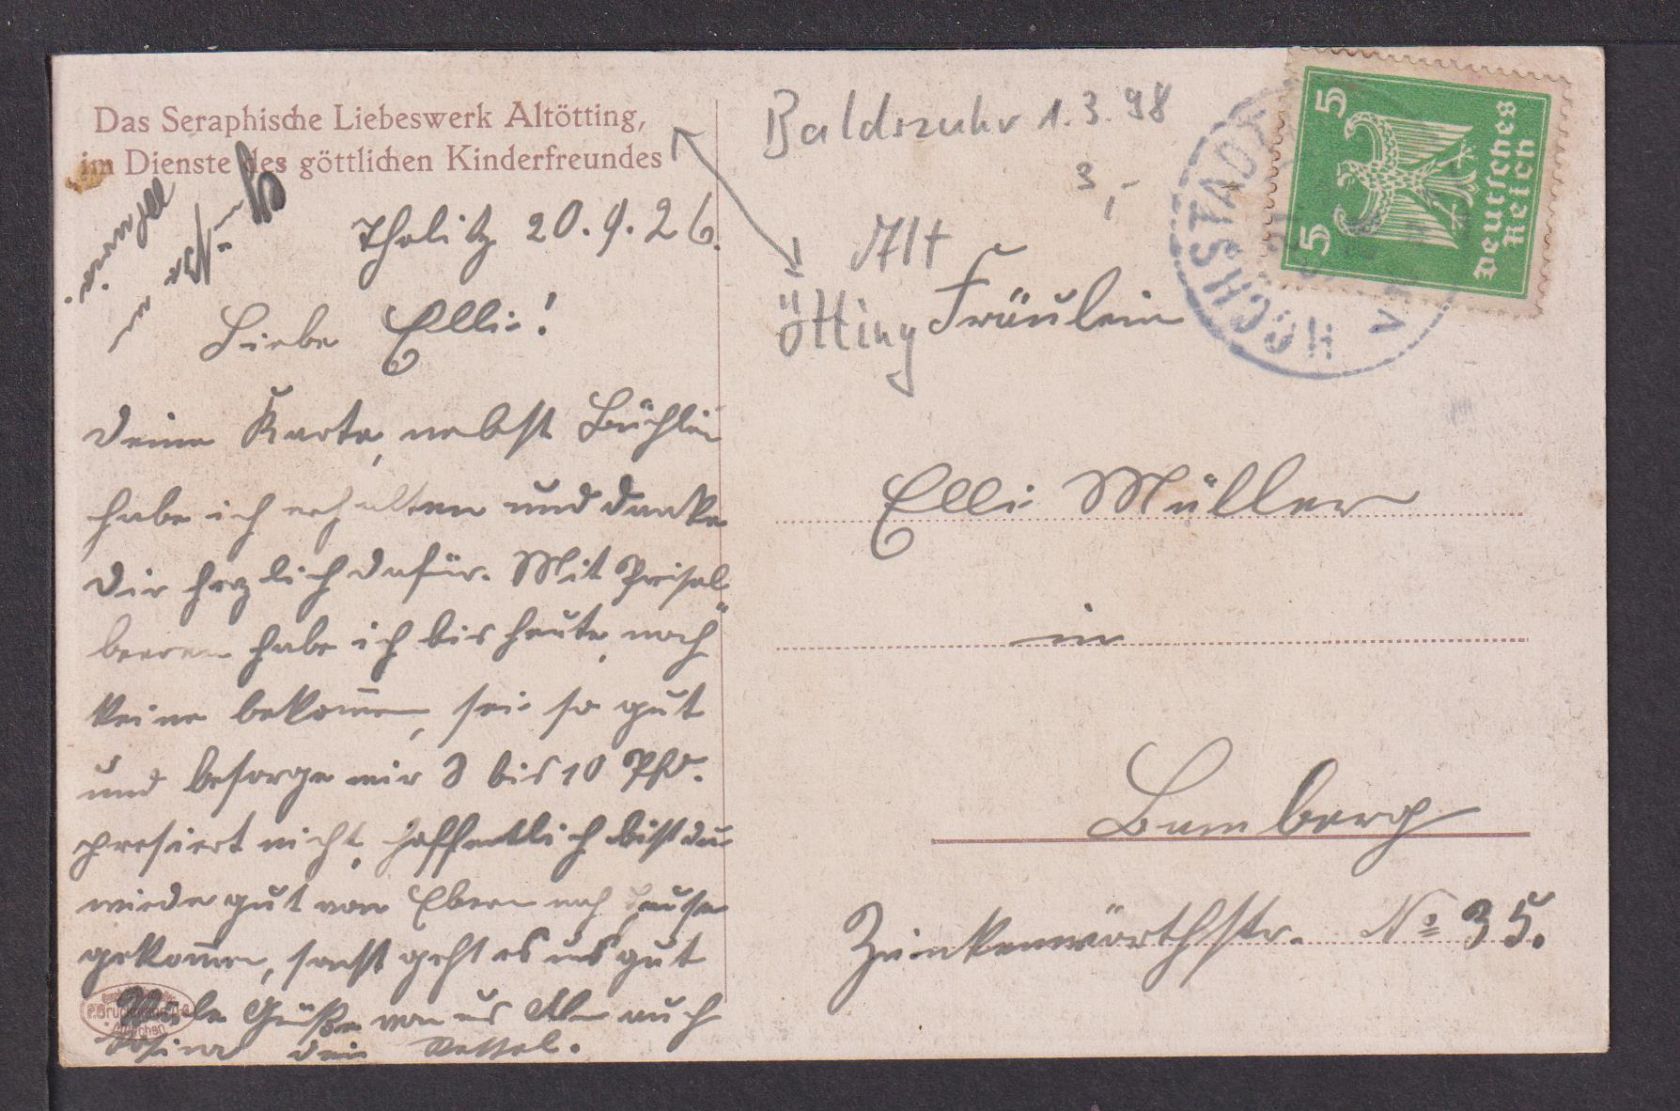 Das Seraphische Liebeswerk Altötting,
im Dienste des göttlichen Kinderfreundes
Tholitz 20.9.26.
Liebe Elli!
Deine Karte, nebst Büchlein
habe ich erhalten und danke
Dir herzlich dafür. Mit Preisel
beeren habe ich bis heute, noch
keine bekomen, sei so gut
und besorge mir 8 bis 10 Pfd.
presiert nicht, hoffentlich bist du
wieder gut von Ebern nach Hause
gekomen, sonst geht es uns gut
Viele Grüße von uns Allen auch
dein
5 5
Deutsches
Reich
HÖCHSTADT
1.3.98
3,-
Alt
ötting
Fräulein
Elli Müller
in
Bamberg
Zinkenwörthstr. No 35.